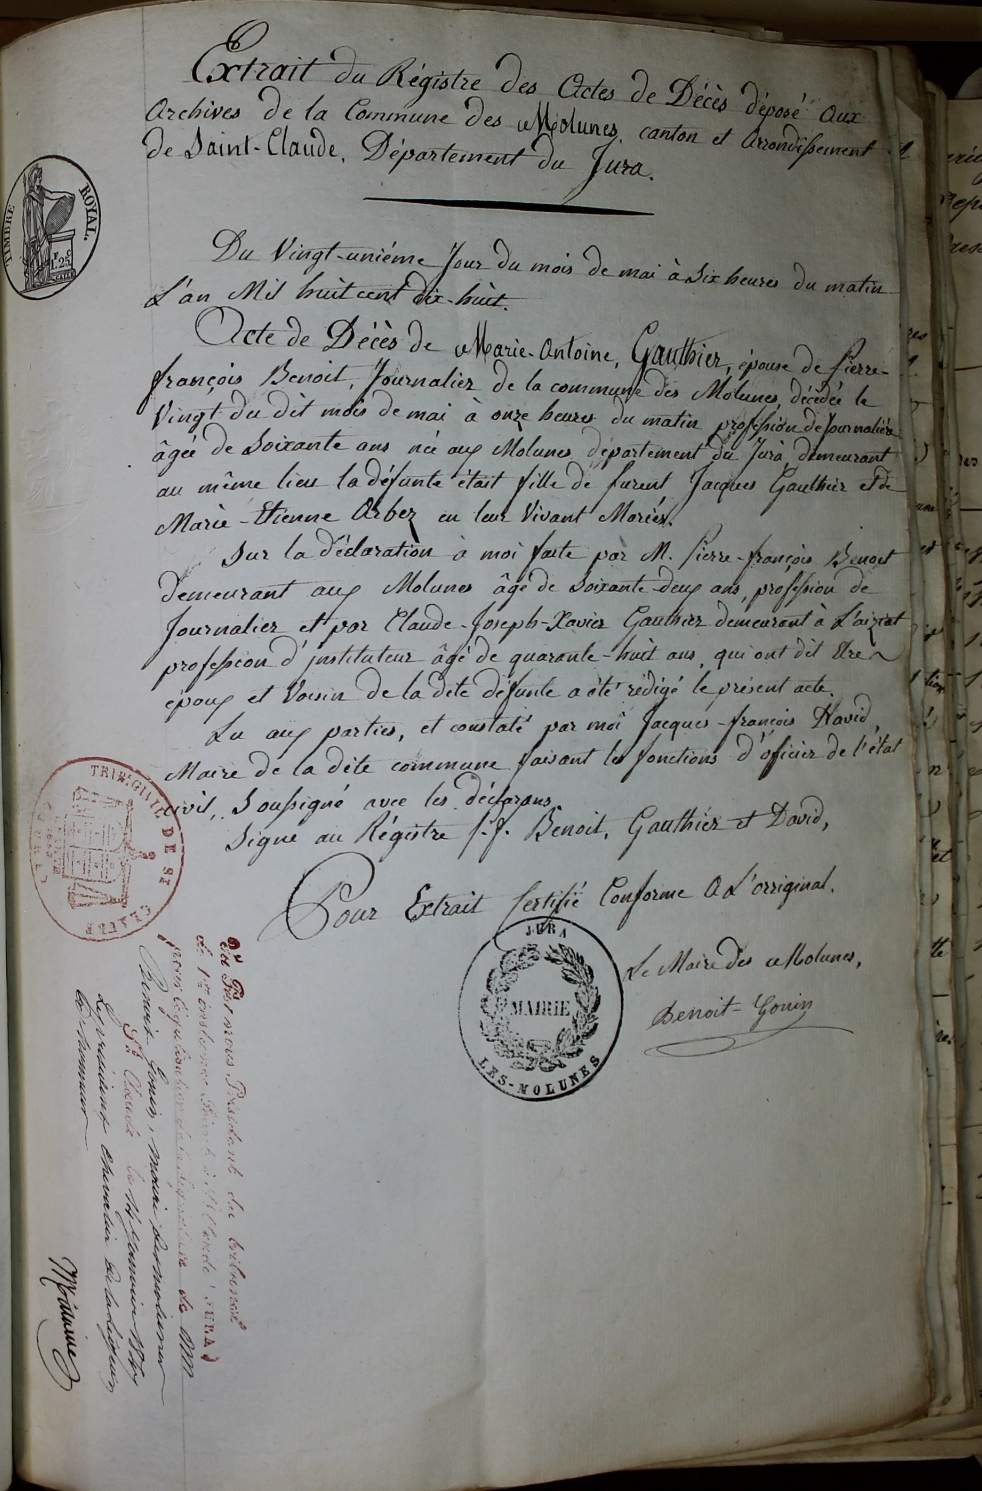 Extrait du Régistre des Actes de Décès déposé aux
Archives de la Commune des Molunes, canton et Arrondissement
de Saint-Claude, Département du Jura.
TIMBRE ROYAL.
1.25
Du Vingt-uniéme Jour du mois de mai à Six heures du matin
L'an Mil huit cent dix-huit.
Acte de Décès de Marie-Antoine, Gauthier, épouse de Pierre-
françois Benoit, Journalier de la commune des Molunes, décédée le
Vingt du dit mois de mai à onze heures du matin profession de Journalière
âgée de Soixante ans née aux Molunes département du Jura, demeurant
au même lieu la défunte était fille de furent Jacques Gauthier et de
Marie-Etienne Arbez en leur Vivant Mariés.
Sur la déclaration à moi faite par M. Pierre-françois Benoit
demeurant aux Molunes âgé de Soixante-deux ans, profession de
Journalier et par Claude-Joseph-Xavier Gauthier demeurant à L'aizrat
profession d'instituteur âgé de quarante-huit ans, qui ont dit Etre
époux et Voisin de la dite défunte a été rédigé le présent acte.
Lu aux parties, et constaté par moi Jacques-françois David,
Maire de la dite commune faisant les fonctions d'officier de l'état
civil, Soussigné avec les déclarans.
Signé au Régistre P.f. Benoit, Gauthier et David,
Pour Extrait Certifié Conforme A L'orriginal.
Le Maire des Molunes,
Benoit-Gonin
JURA
MAIRIE
LES-MOLUNES
TRIB. CIVIL DE ST CLAUDE
JURA
Vu Par nous Président du tribunal
de 1re instance Séant à St Claude (JURA)
pour légalisation de la signature de Mr
Benoit Gonin, maire des molunes
St Claude le 14 Janvier
Le président Chevalier de la légion
d'honneur